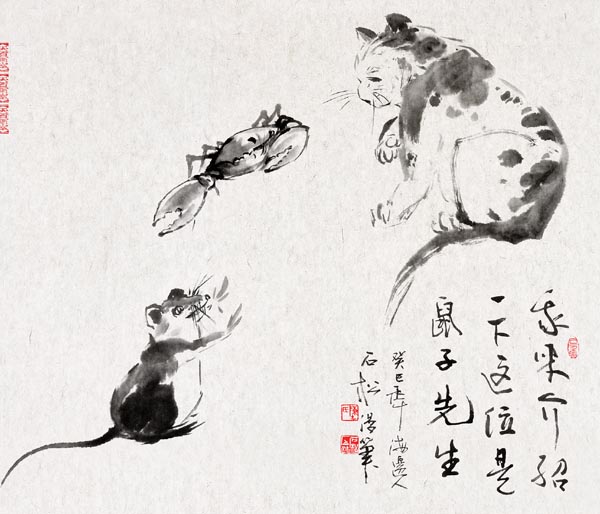 我来介绍
一下这位是
鼠子先生
癸巳年海边人
石松漫笔